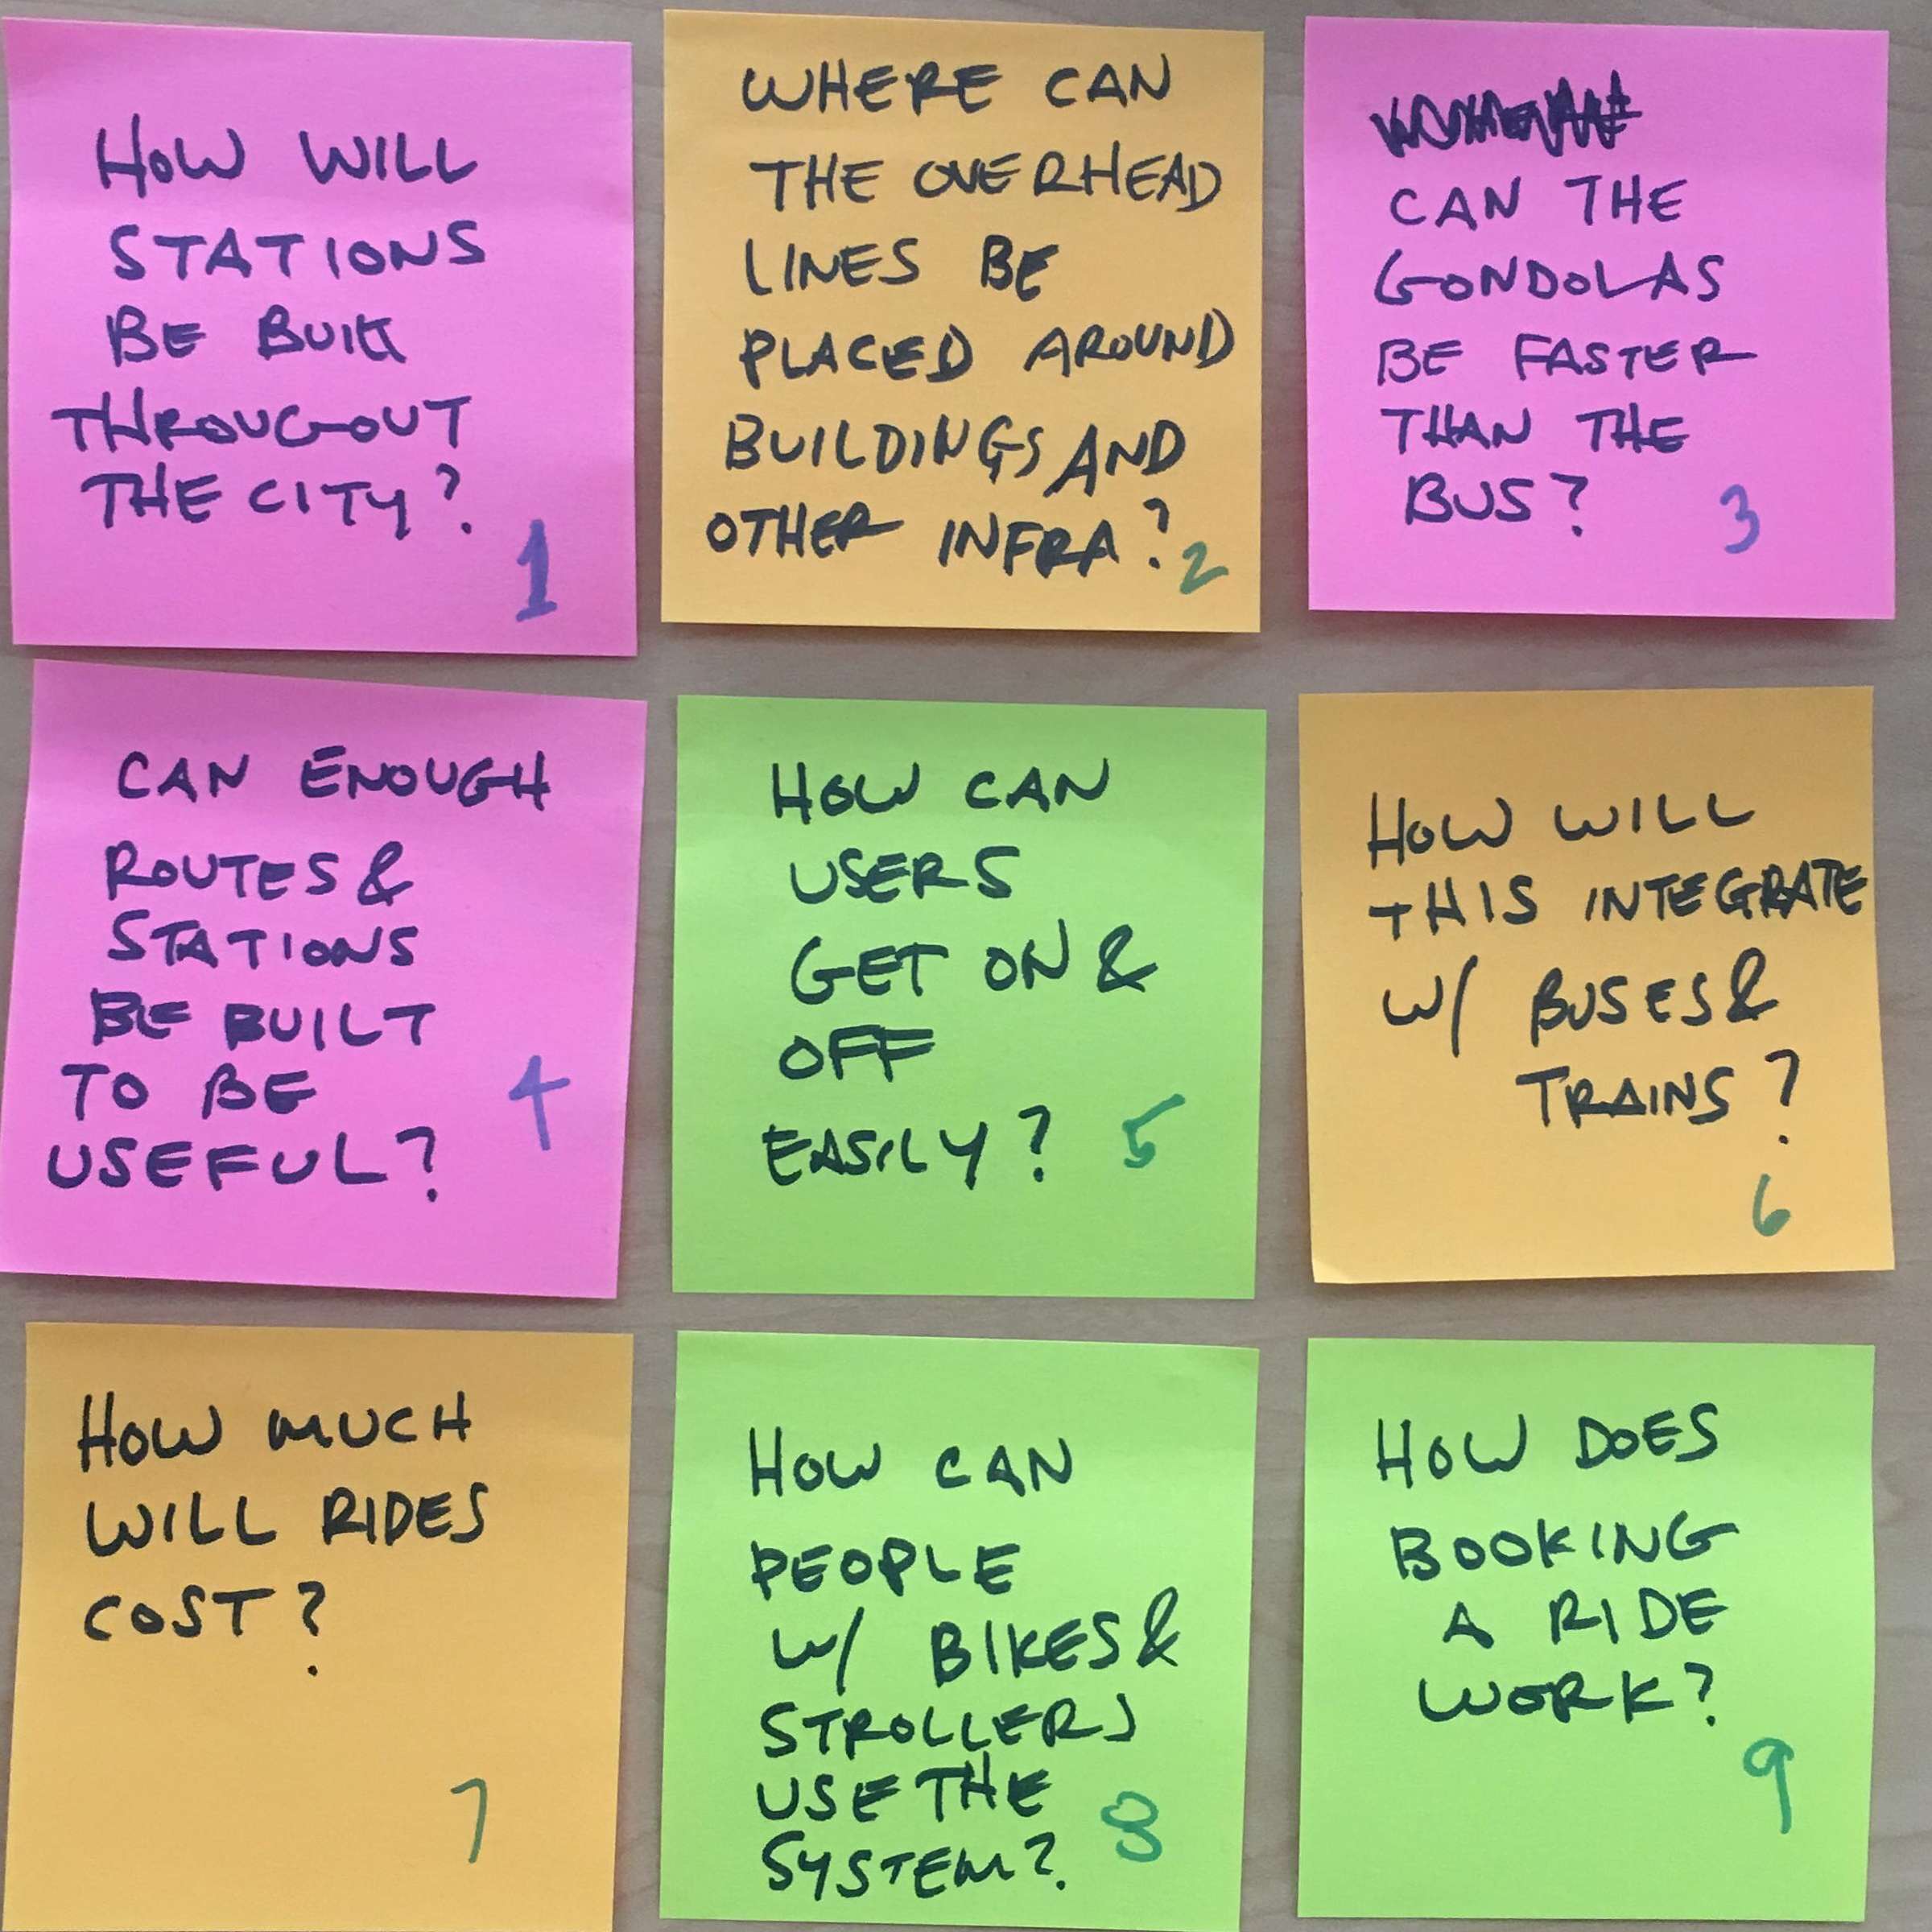 HOW WILL
STATIONS
BE BUILT
THROUGOUT
THE CITY?
1
WHERE CAN
THE OVERHEAD
LINES BE
PLACED AROUND
BUILDINGS AND
OTHER INFRA?
2
CAN THE
GONDOLAS
BE FASTER
THAN THE
BUS?
3
CAN ENOUGH
ROUTES &
STATIONS
BE BUILT
TO BE
USEFUL?
4
HOW CAN
USERS
GET ON &
OFF
EASILY?
5
HOW WILL
THIS INTEGRATE
W/ BUSES &
TRAINS?
6
HOW MUCH
WILL RIDES
COST?
7
HOW CAN
PEOPLE
W/ BIKES &
STROLLERS
USE THE
SYSTEM?
8
HOW DOES
BOOKING
A RIDE
WORK?
9